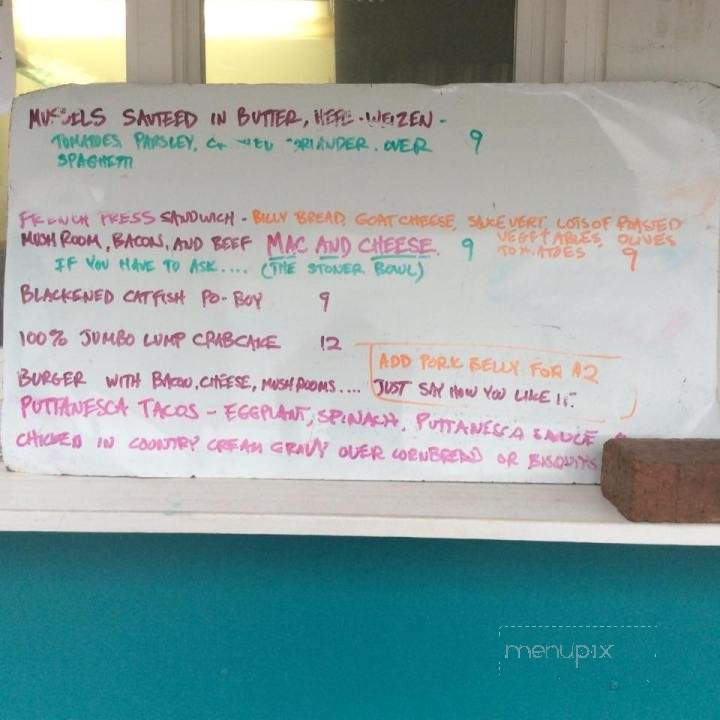 MUSSELS SAUTEED IN BUTTER, HEFE-WEIZEN -
TOMATOES, PARSLEY, OVER 9
SPAGHETTI
FRENCH PRESS SANDWICH - BILLY BREAD, GOAT CHEESE, LOTS OF ROASTED
VEGETABLES, OLIVES
TOMATOES 9
MUSHROOM, BACON, AND BEEF MAC AND CHEESE 9
IF YOU HAVE TO ASK.... (THE STONER BOWL)
BLACKENED CATFISH PO-BOY 9
100% JUMBO LUMP CRABCAKE 12
ADD PORK BELLY FOR $2
BURGER WITH BACON, CHEESE, MUSHROOMS.... JUST SAY HOW YOU LIKE IT.
PUTTANESCA TACOS - EGGPLANT, SPINACH, PUTTANESCA SAUCE
CHICKEN IN COUNTRY CREAM GRAVY OVER CORNBREAD OR BISQUITS
menupix